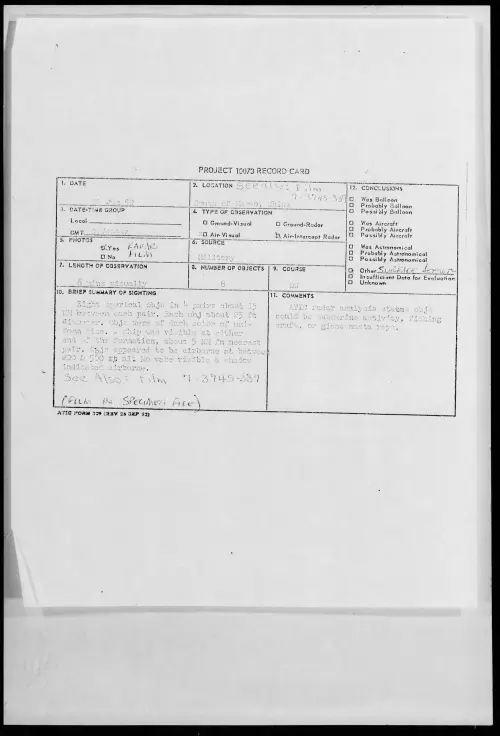 PROJECT 10073 RECORD CARD
1. DATE
2. LOCATION SEE ALSO: Film
7-3745-389
12. CONCLUSIONS
□ Was Balloon
□ Probably Balloon
□ Possibly Balloon
3. DATE-TIME GROUP
Local
GMT
4. TYPE OF OBSERVATION
□ Ground-Visual □ Ground-Radar
□ Air-Visual □ Air-Intercept Radar
□ Was Aircraft
□ Probably Aircraft
□ Possibly Aircraft
5. PHOTOS
□ Yes RADAR
□ No FILM
6. SOURCE
Military
□ Was Astronomical
□ Probably Astronomical
□ Possibly Astronomical
7. LENGTH OF OBSERVATION
6 mins visually
8. NUMBER OF OBJECTS
8
9. COURSE
□ Other SURFACE
□ Insufficient Data for Evaluation
□ Unknown
10. BRIEF SUMMARY OF SIGHTING
Eight objs in 4 pairs about 15
NM between each pair. Each obj about 25 ft
diameter. Objs were of dark color of uni-
form size. ship was visible at either
end of the formation, about 5 NM fm nearest
pair. Objs appeared to be airborne at between
& 500 No wake visible & shadow
indicated airborne.
See Also: Film 7-3745-389
(FILM IN SPECIMEN FILE)
11. COMMENTS
ATIC radar analysis states objs
could be submarine activity, fishing
craft, or glass
ATIC FORM 329 (REV 26 SEP 52)